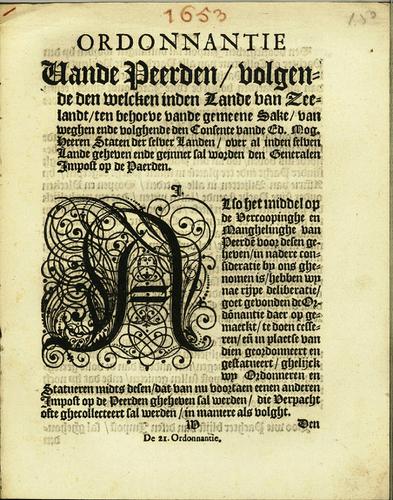 1653
ORDONNANTIE
Vande Peerden / volgen-
de den welcken inden Lande van Zee-
landt / ten behoeve vande gemeene Sake / van
weghen ende volghende den Consente vande Ed. Mog.
Heeren Staten der selver Landen / over al inden selven
Lande geheven ende geinnet sal worden den Generalen
Impost op de Paerden.
I.
Also het middel op
de Vercoopinghe en
Manghelinghe van
Peerdē voor desen ge-
heven / in nadere con-
sideratie by ons ghe-
nomen is / hebben wy
nae rijpe deliberatie /
goet gevonden de Or-
dōnantie daer op ge-
maeckt / te doen cesse-
ren / eñ in plaets van
dien geordonneert en
gestatueert / ghelijck
wy Ordonneren en
Statueren midts desen / dat van nu voortaen eenen anderen
Impost op de Peerden gheheven sal werden / die Verpacht
ofte ghecollecteert sal werden / in maniere als volght.
Den
De 21. Ordonnantie.